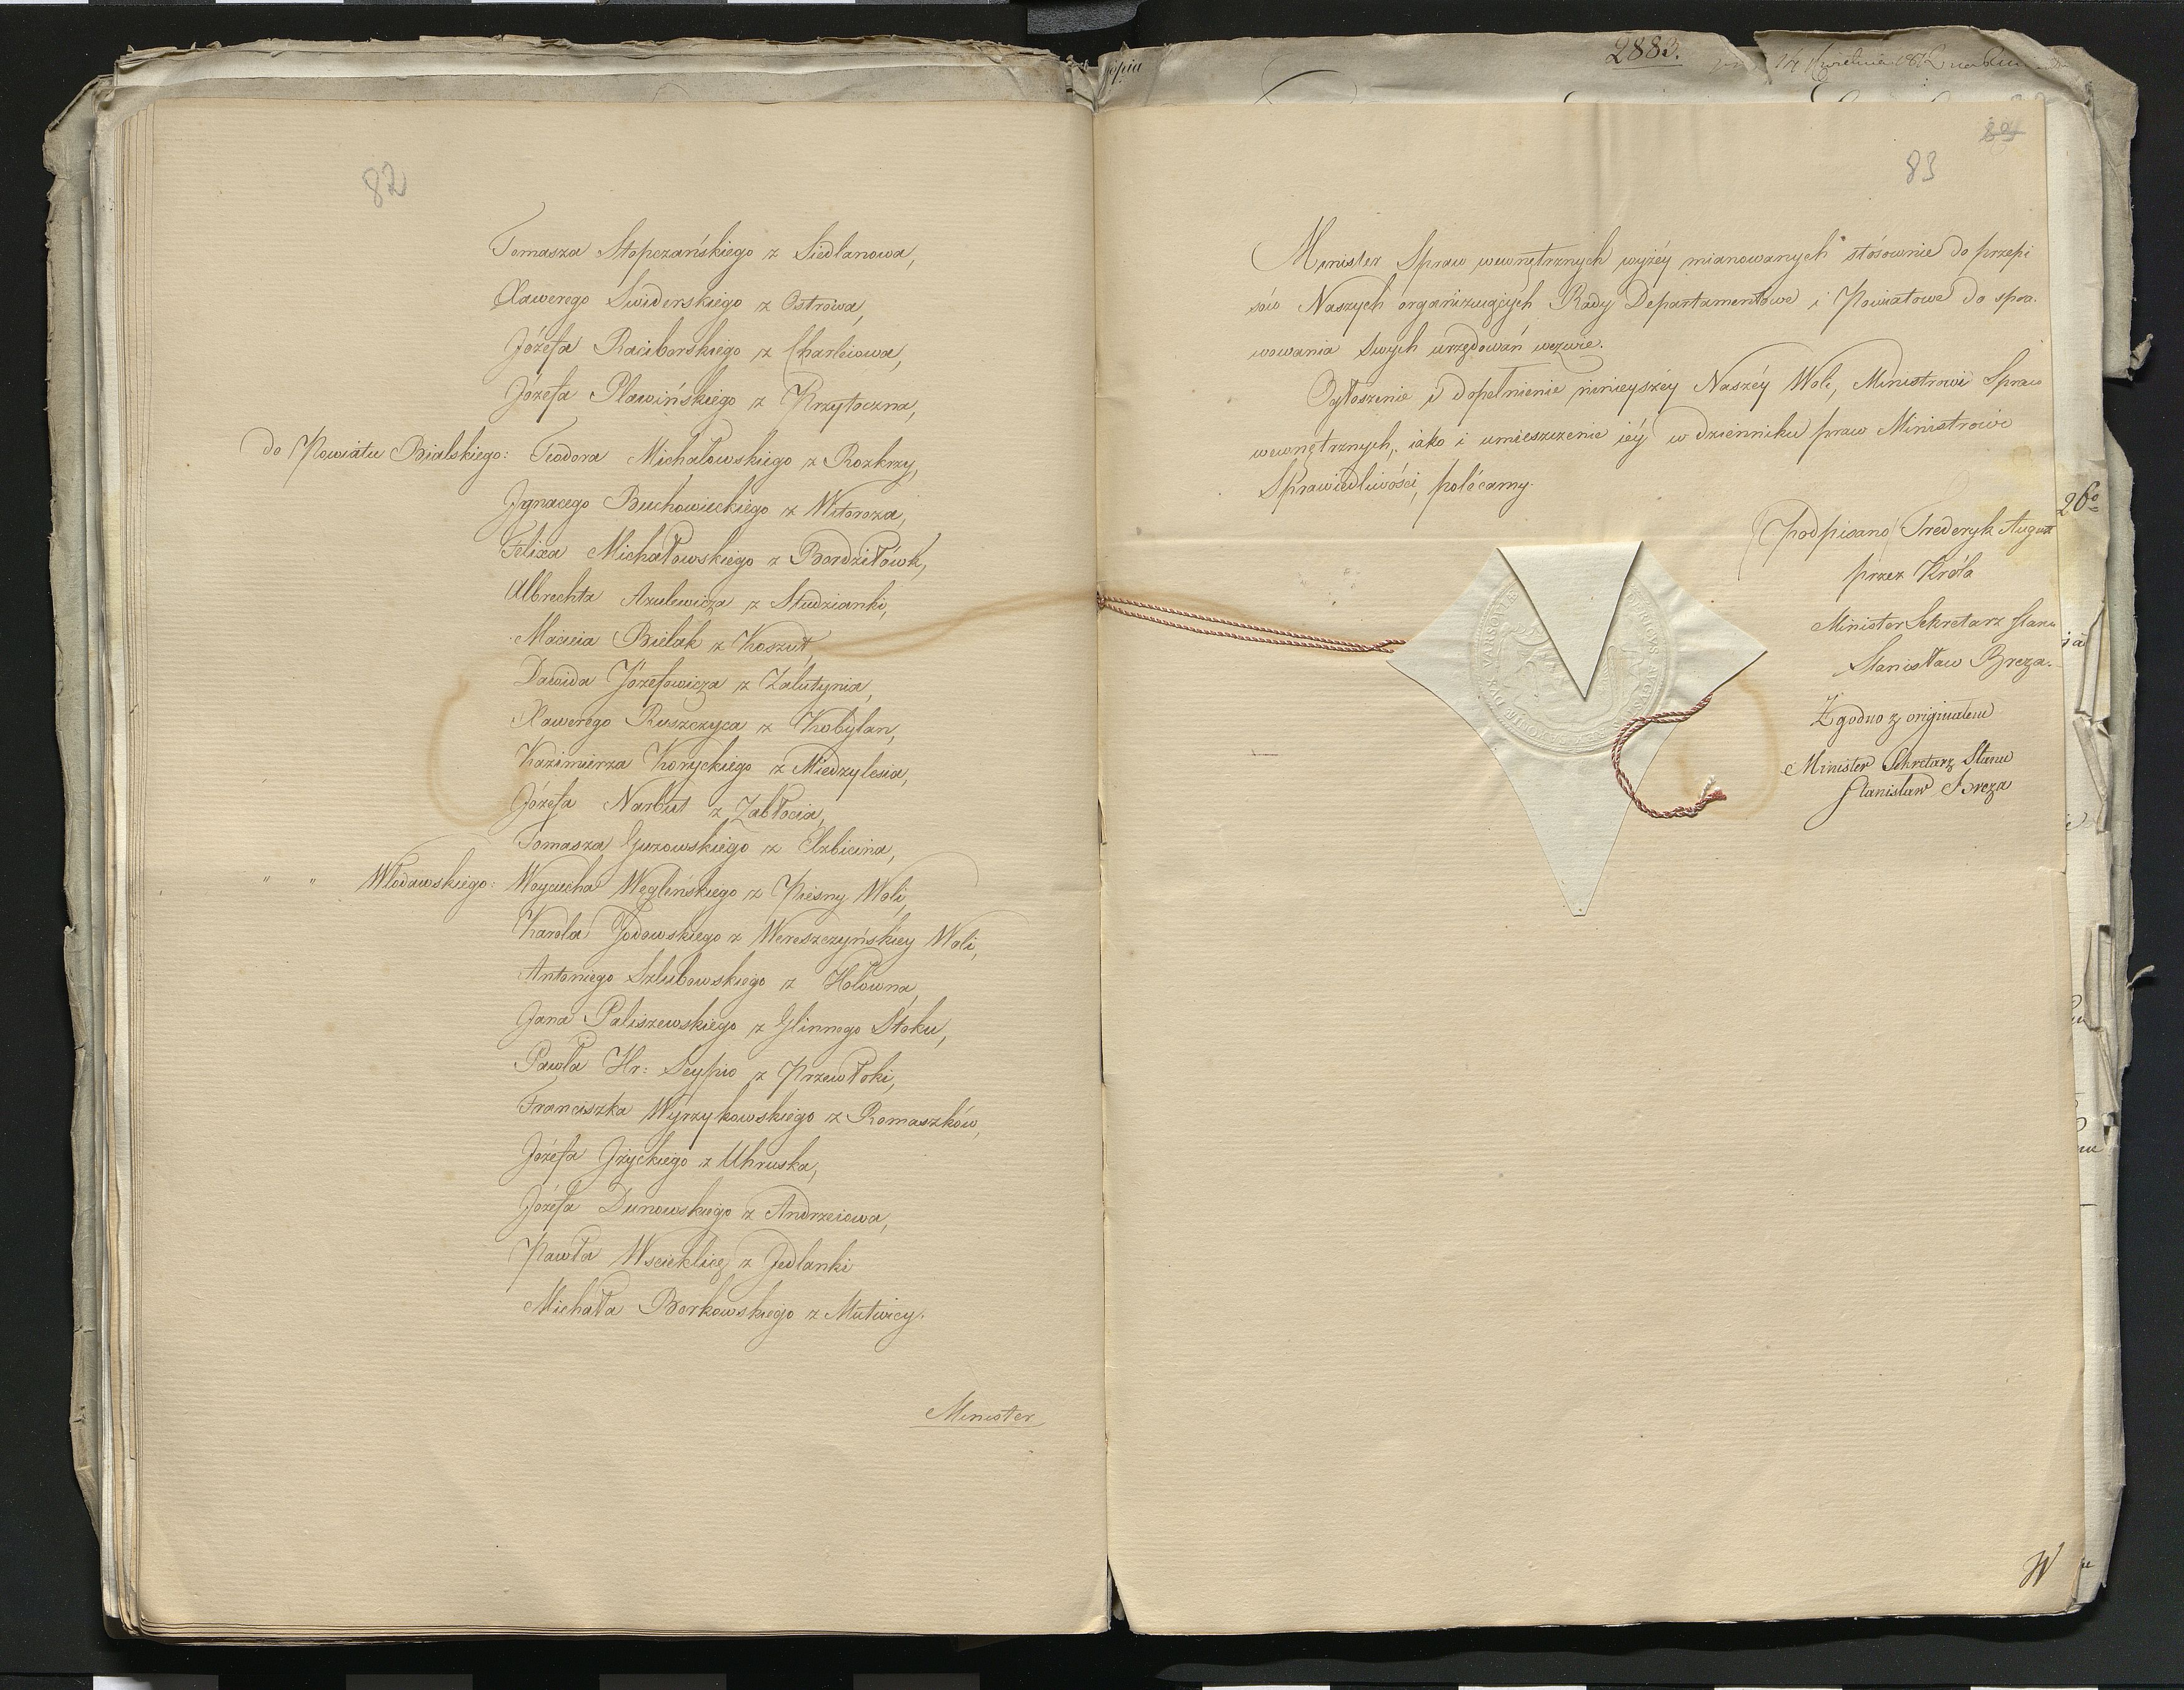 82
Tomasza Stopczańskiego z Siedlanowa,
Xawerego Swiderskiego z Ostrowa,
Józefa Raciborskiego z Charleiowa,
Józefa Pławińskiego z Przytoczna,
do Powiatu Bialskiego: Teodora Michałowskiego z Rozkrzy,
Jgnacego Buchowieckiego z Witoroza,
Felixa Michałowskiego z Bordziłówk,
Albrechta Azulewicza z Studzianki,
Macieia Bielak z Koszut,
Dawida Józefowicza z Zalutynia,
Xawerego Ruszczyca z Kobylan,
Kazimierza Koryckiego z Miedzylesia,
Józefa Narbut z Zabłocia,
Tomasza Guzowskiego z Elzbicina,
" " Włodawskiego: Woyciecha Węgleńskiego z Piesny Woli,
Karola Jodowskiego z Wereszczyńskiey Woli,
Antoniego Szlubowskiego z Hołowna,
Jana Paliszewskiego z Glinnego Stoku,
Pawła Hr: Scypio z Przewłoki,
Franciszka Wyrzykowskiego z Romaszków,
Józefa Jżyckiego z Uhruska,
Józefa Dunowskiego z Andrzeiowa,
Pawła Wscieklicę z Jedlanki
Michała Borkowskiego z Mutwicy.
Minister
2883.
83
Minister Spraw wewnętrznych wyżéy mianowanych stósownie do przepi
sów Naszych organizuiących Rady Departamentowe i Powiatowe do spra-
wowania swych urzędowań wezwie.
Ogłoszenie i dopełnienie ninieyszéy Naszéy Woli, Ministrowi Spraw
wewnętrznych, iako i umieszczenie iéy w dzienniku praw Ministrowi
Sprawiedliwości, polécamy.
(Podpisano) Frederyk August
przez Króla
Minister Sekretarz Stanu
Stanisław Breza.
Zgodno z originałem
Minister Sekretarz Stanu
Stanisław Breza
W